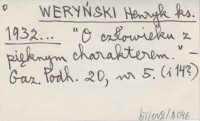 WERYŃSKI Henryk ks.
1932... "O człowieku z
pięknym charakterem." -
Gaz. Podh. 20, nr 5. (i 14?)